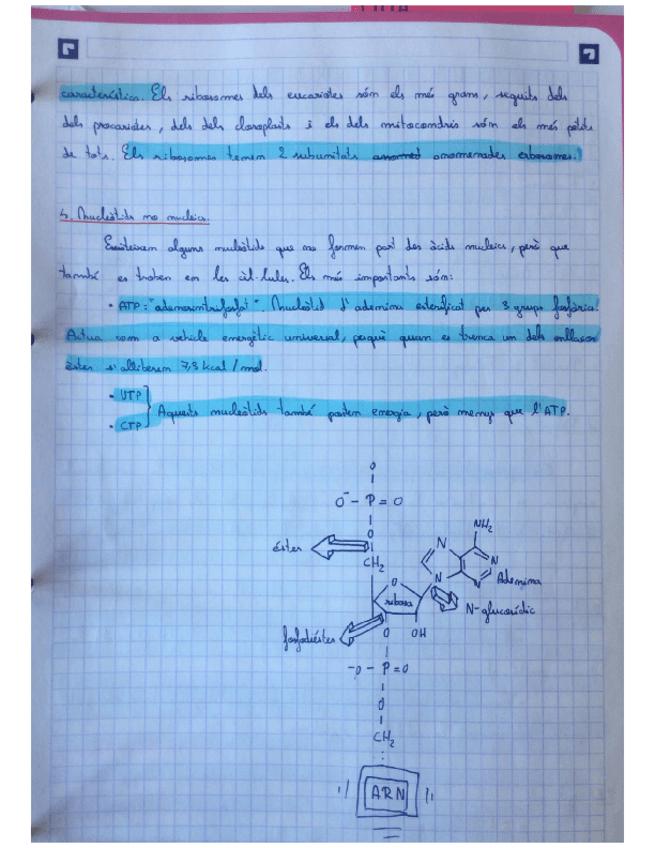 característica. Els ribosomes dels eucariotes són els més grans, seguits dels
dels procariotes, dels dels cloroplasts i els dels mitocondris són els més petits
de tots. Els ribosomes tenen 2 subunitats anomenades
4. Nucleòtids no nucleics.
Existeixen alguns nucleòtids que no formen part dels àcids nucleics, però que
també es troben en les cèl·lules. Els més importants són:
· ATP: "adenosintrifosfat". Nucleòtid d'adenina esterificat per 3 grups fosfòrics.
Actua com a vehicle energètic universal, perquè quan es trenca un dels enllaços
èster s'alliberen 7,3 kcal/mol.
· UTP
· CTP
Aquests nucleòtids també porten energia, però menys que l'ATP.
O
O⁻ - P = O
O
éster
CH₂
NH₂
N
N
N
N
Adenina
O
ribosa
N-glucosídic
fosfodiéster
O
OH
-O - P = O
O
CH₂
ARN